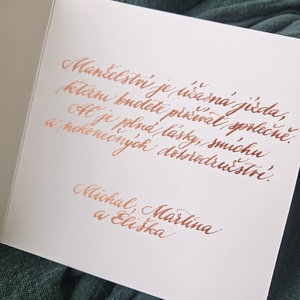 Manželství je úžasná jízda,
kterou budete prožívat společně.
Ať je plná lásky, smíchu
a nekonečných dobrodružství.
Michal, Martina
a Eliška